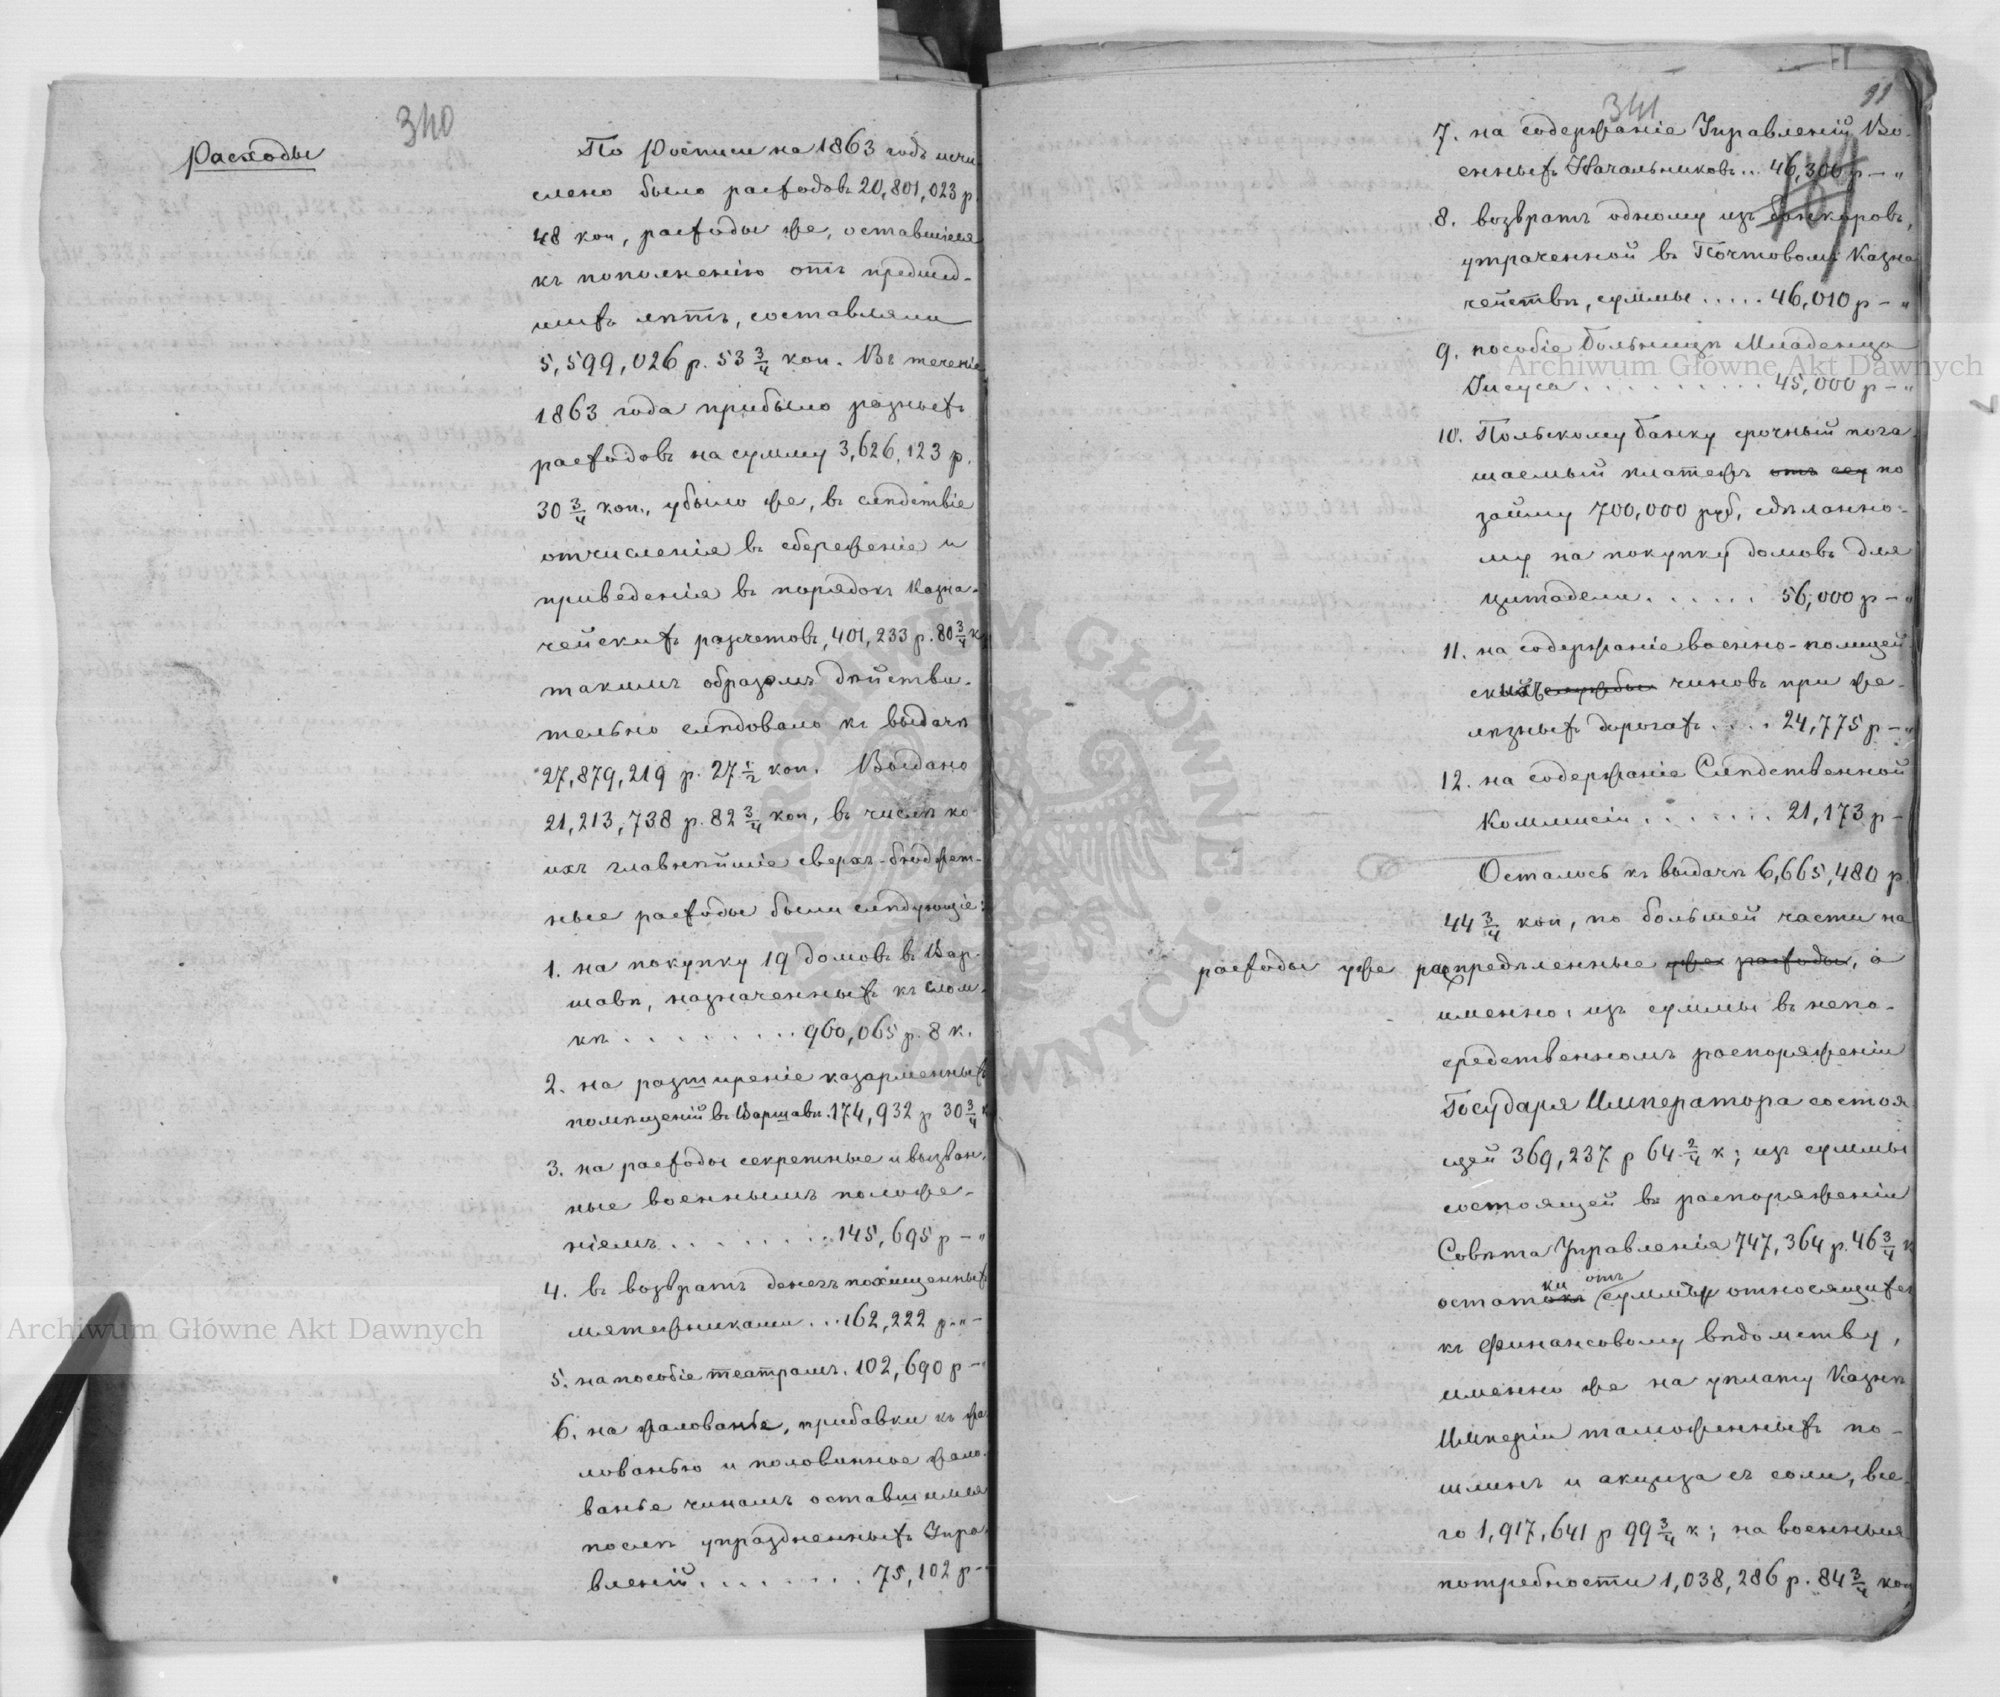 340
Расходы
По Росписи на 1863 годъ исчи-
слено было расходовъ 20,801,023 р.
48 коп, расходы же, оставшіеся
къ пополненію отъ предшед-
шихъ лѣтъ, составляли
5,599,026 р. 53 3/4 коп. Въ теченіе
1863 года прибыло разныхъ
расходовъ на сумму 3,626,123 р.
30 3/4 коп., убыло же, въ слѣдствіе
отчисленія въ сбереженіе и
приведенія въ порядокъ Казна-
чейскихъ разчетовъ, 401,233 р. 80 3/4 к
такимъ образомъ дѣйстви-
тельно слѣдовало къ выдачѣ
27,879,219 р. 27 1/2 коп. Выдано
21,213,738 р. 82 3/4 коп, въ числѣ ко-
ихъ главнѣйшіе сверхъ-бюджет-
ные расходы были слѣдующіе:
1. на покупку 19 домовъ въ Вар-
шавѣ, назначенныхъ къ слом-
кѣ ......... 960,065 р. 8 к.
2. на разширеніе казарменныхъ
помѣщеній въ Варшавѣ. 174,932 р 30 3/4 к
3. на расходы секретные и вызван-
ные военнымъ положе-
ніемъ ........ 145,695 р - "
4. въ возвратъ денегъ похищенныхъ
мятежниками ... 162,222 р. " -
5. на пособіе театрамъ. 102,690 р - "
6. на жалованье, прибавки къ жа-
лованью и половинное жало-
ванье чинамъ оставшимся
послѣ упраздненныхъ Упра-
вленій ....... 75,102 р -
341
91
7. на содержаніе Управленій Во-
енныхъ Начальниковъ ... 46,300 р - "
8. возвратъ одному изъ банкировъ,
утраченной въ Почтовомъ Казна-
чействѣ, суммы ..... 46,010 р - "
9. пособіе Больницѣ Младенца
Іисуса .......... 45,000 р - "
10. Польскому банку срочный пога-
шаемый платежъ отъ сей по
займу 700,000 руб, сдѣланно-
му на покупку домовъ для
цитадели ...... 56,000 р - "
11. на содержаніе военно-полицей-
скихъ службы чиновъ при же-
лѣзныхъ дорогахъ .... 24,775 р - "
12. на содержаніе Слѣдственной
Коммисіи ....... 21,173 р -
Осталось къ выдачѣ 6,665,480 р.
44 3/4 коп, по большей части на
расходы уже распредѣленные уже расходы, а
именно: изъ суммы въ непо-
средственномъ распоряженіи
Государя Императора состоя-
щей 369,237 р 64 2/4 к; изъ суммы
состоящей въ распоряженіи
Совѣта Управленія 747,364 р. 46 3/4 к
ки отъ
остатокъ суммы относящихся
къ финансовому вѣдомству,
именно же на уплату Казнѣ
Имперіи таможенныхъ по-
шлинъ и акциза съ соли, все-
го 1,917,641 р 99 3/4 к; на военныя
потребности 1,038,286 р. 84 3/4 коп
Archiwum Główne Akt Dawnych
Archiwum Główne Akt Dawnych
ARCHIWUM GŁÓWNE AKT DAWNYCH